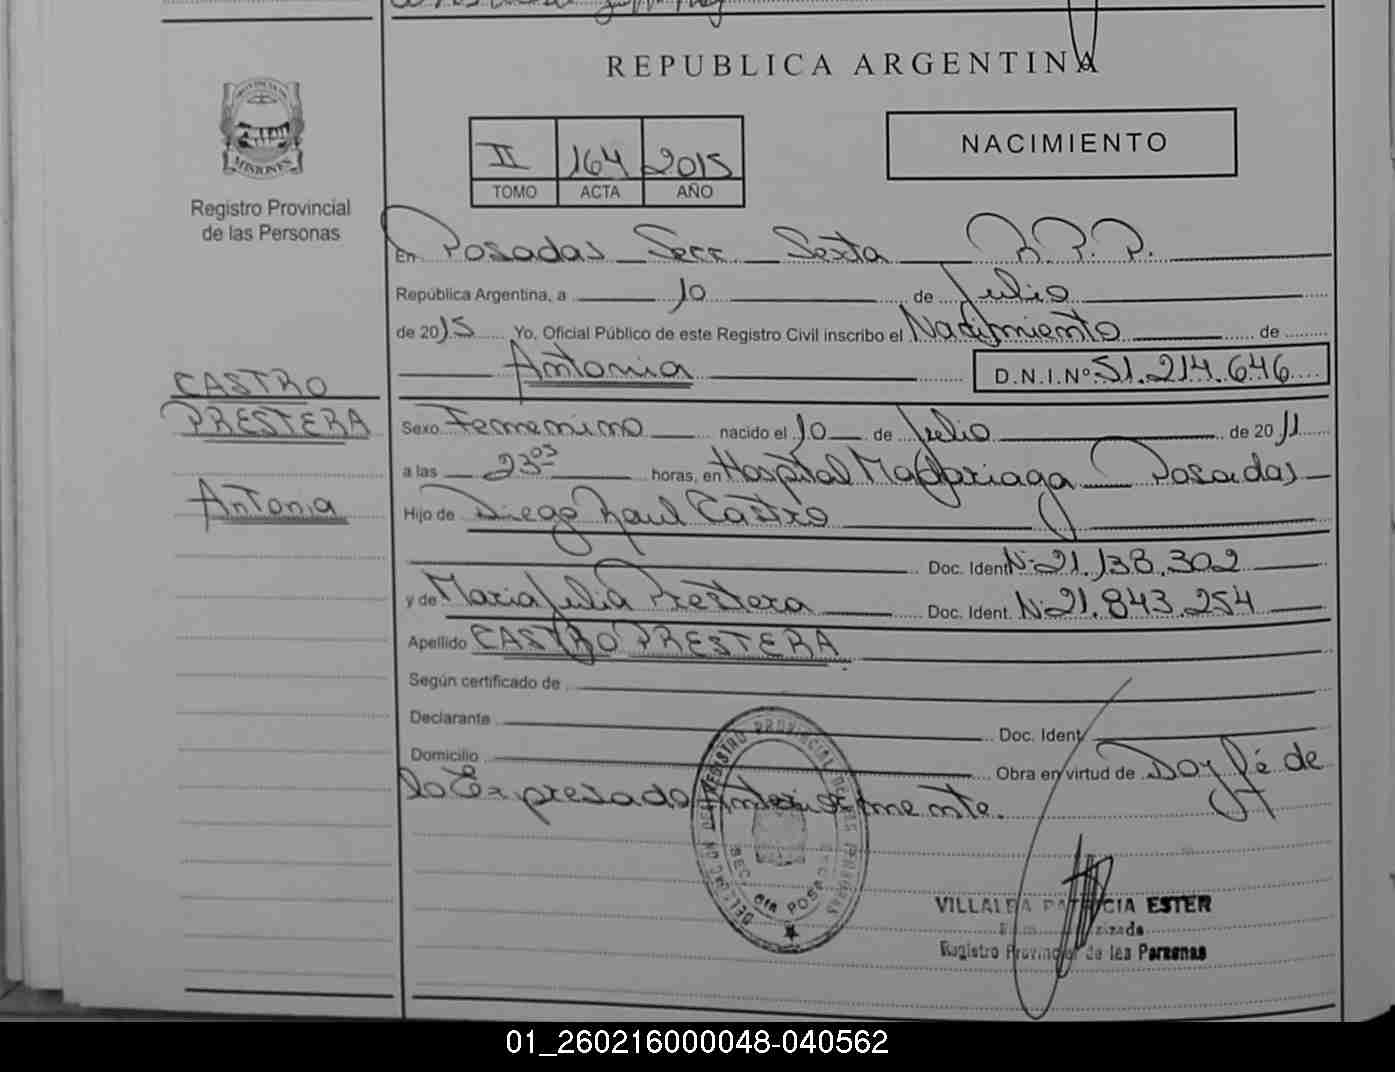 REPUBLICA ARGENTINA
PROVINCIA DE
MISIONES
Registro Provincial
de las Personas
II 164 2015
TOMO ACTA AÑO
NACIMIENTO
En Posadas Secc Sexta R.P.P.
República Argentina, a 10 de Julio
de 2015 Yo, Oficial Público de este Registro Civil inscribo el Nacimiento de
Antonia D.N.I.Nº 51.214.646
CASTRO
PRESTERA
Antonia
Sexo Femenino nacido el 10 de Julio de 2011
a las 23 03 horas, en Hospital Madariaga Posadas
Hijo de Diego Raul Castro
Doc. Ident Nº 21.138.302
y de Maria Julia Prestera Doc. Ident. Nº 21.843.254
Apellido CASTRO PRESTERA
Según certificado de
Declarante Doc. Ident
Domicilio Obra en virtud de Doy fé de
lo Expresado Anteriormente.
DELEGACION DEL REGISTRO PROVINCIAL DE LAS PERSONAS
SEC. 6ta POSADAS
VILLALBA PATRICIA ESTER
Registro Provincial de las Personas
01_260216000048-040562